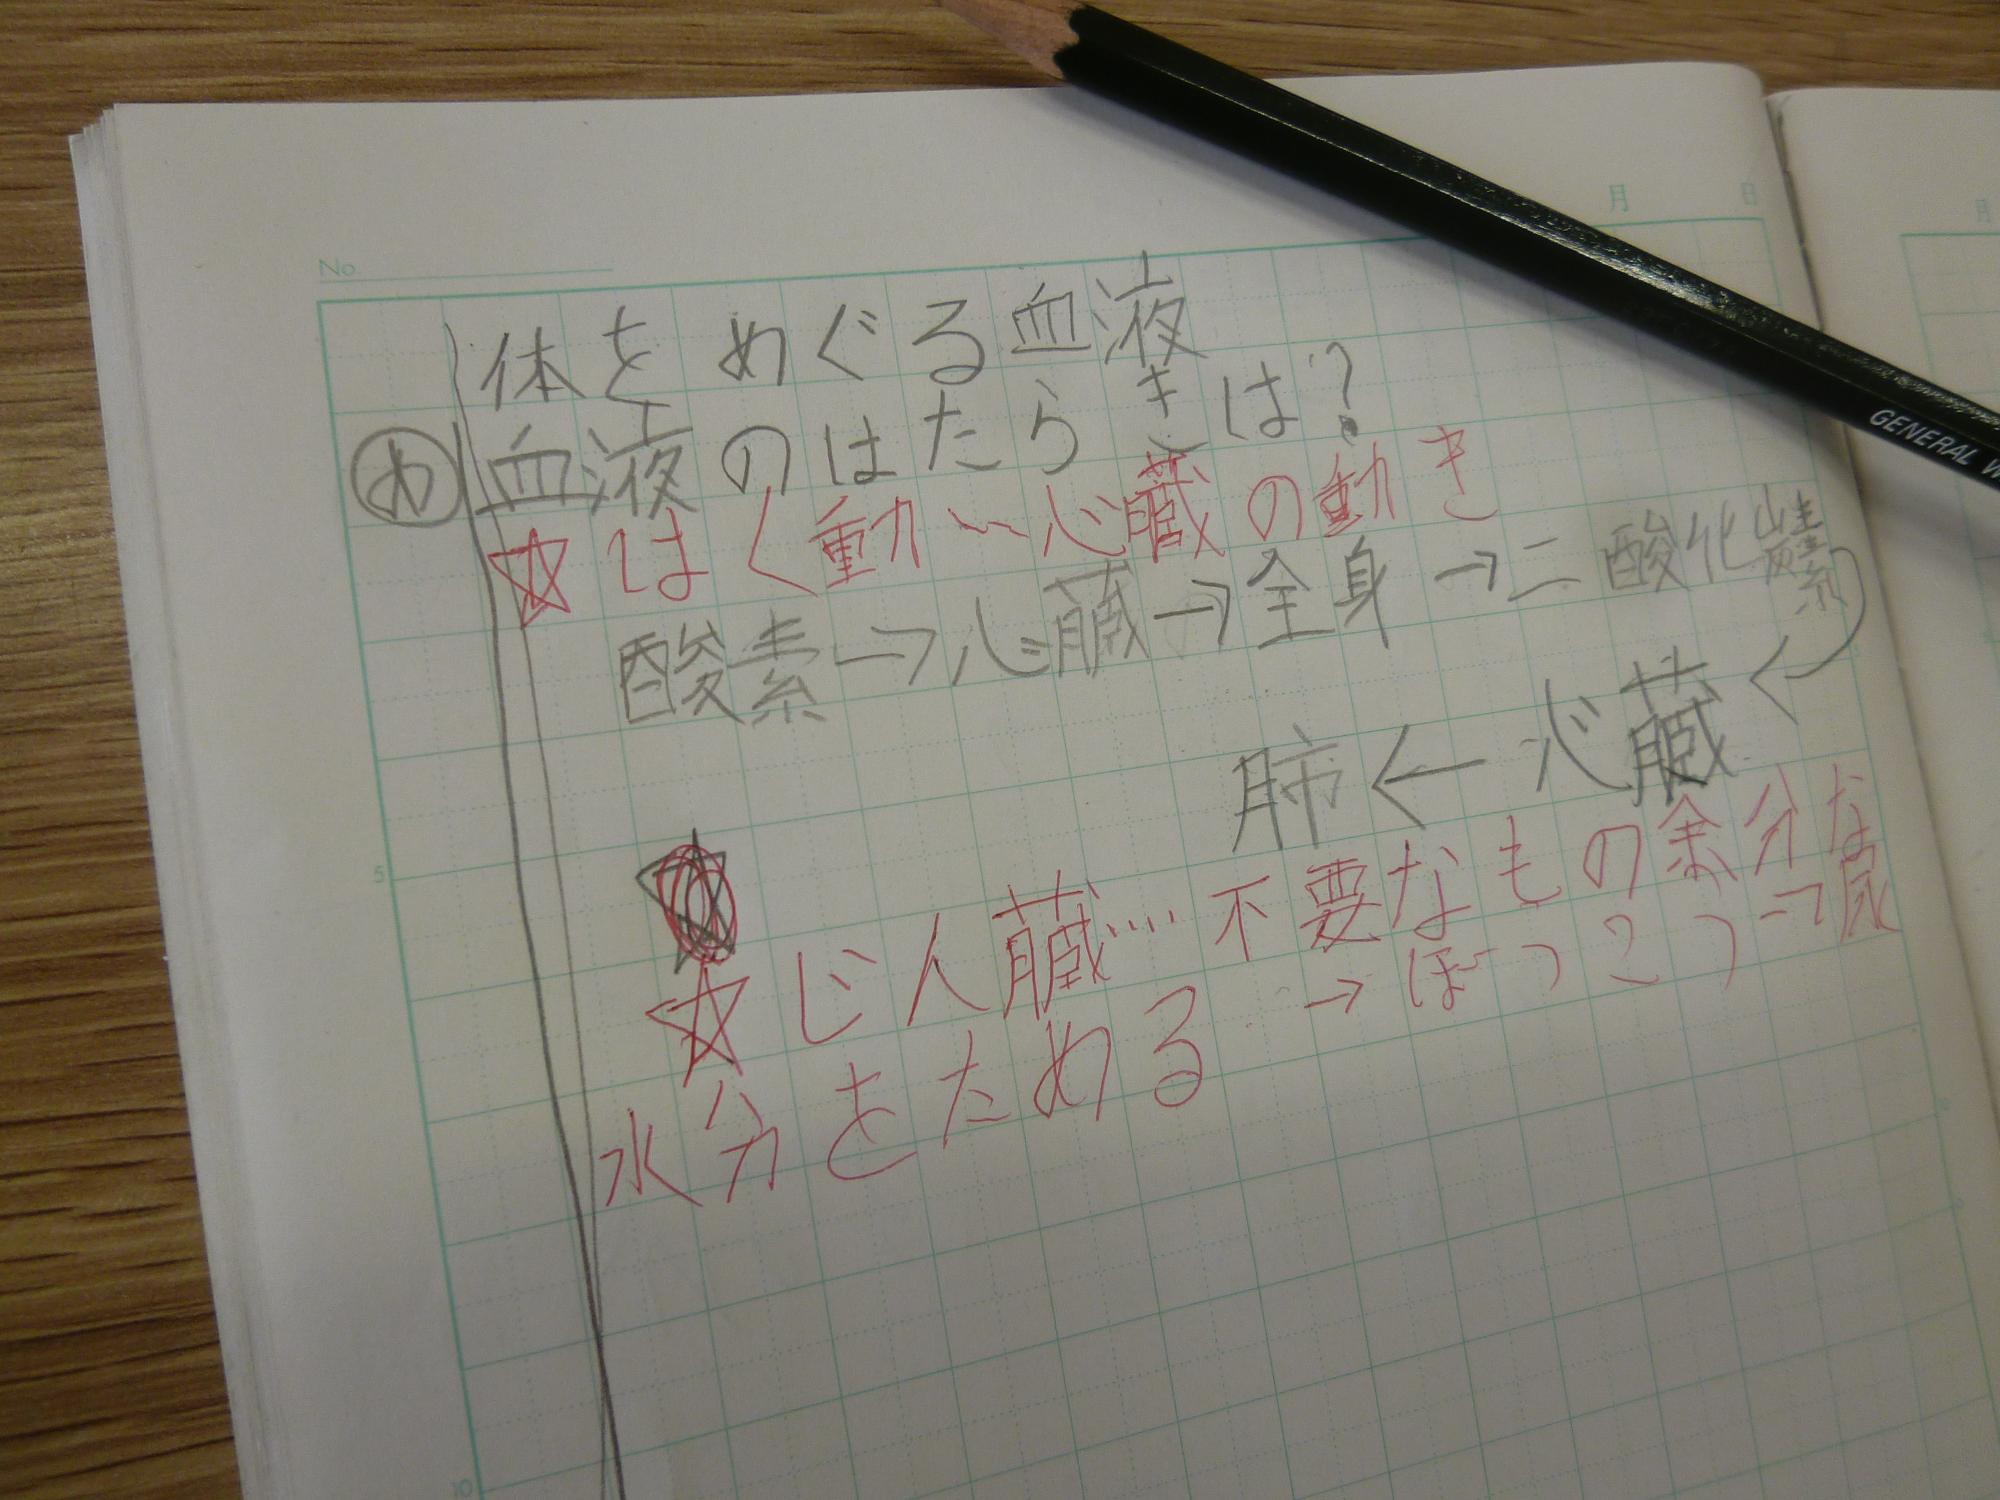 No
月 日
月
体をめぐる血液
め 血液のはたらきは?
☆はく動…心臓の動き
酸素→心臓→全身→二酸化
肺←心臓←
☆じん臓…不要なもの余分な
水分をためる →ぼうこう→尿
5
10
GENERAL W